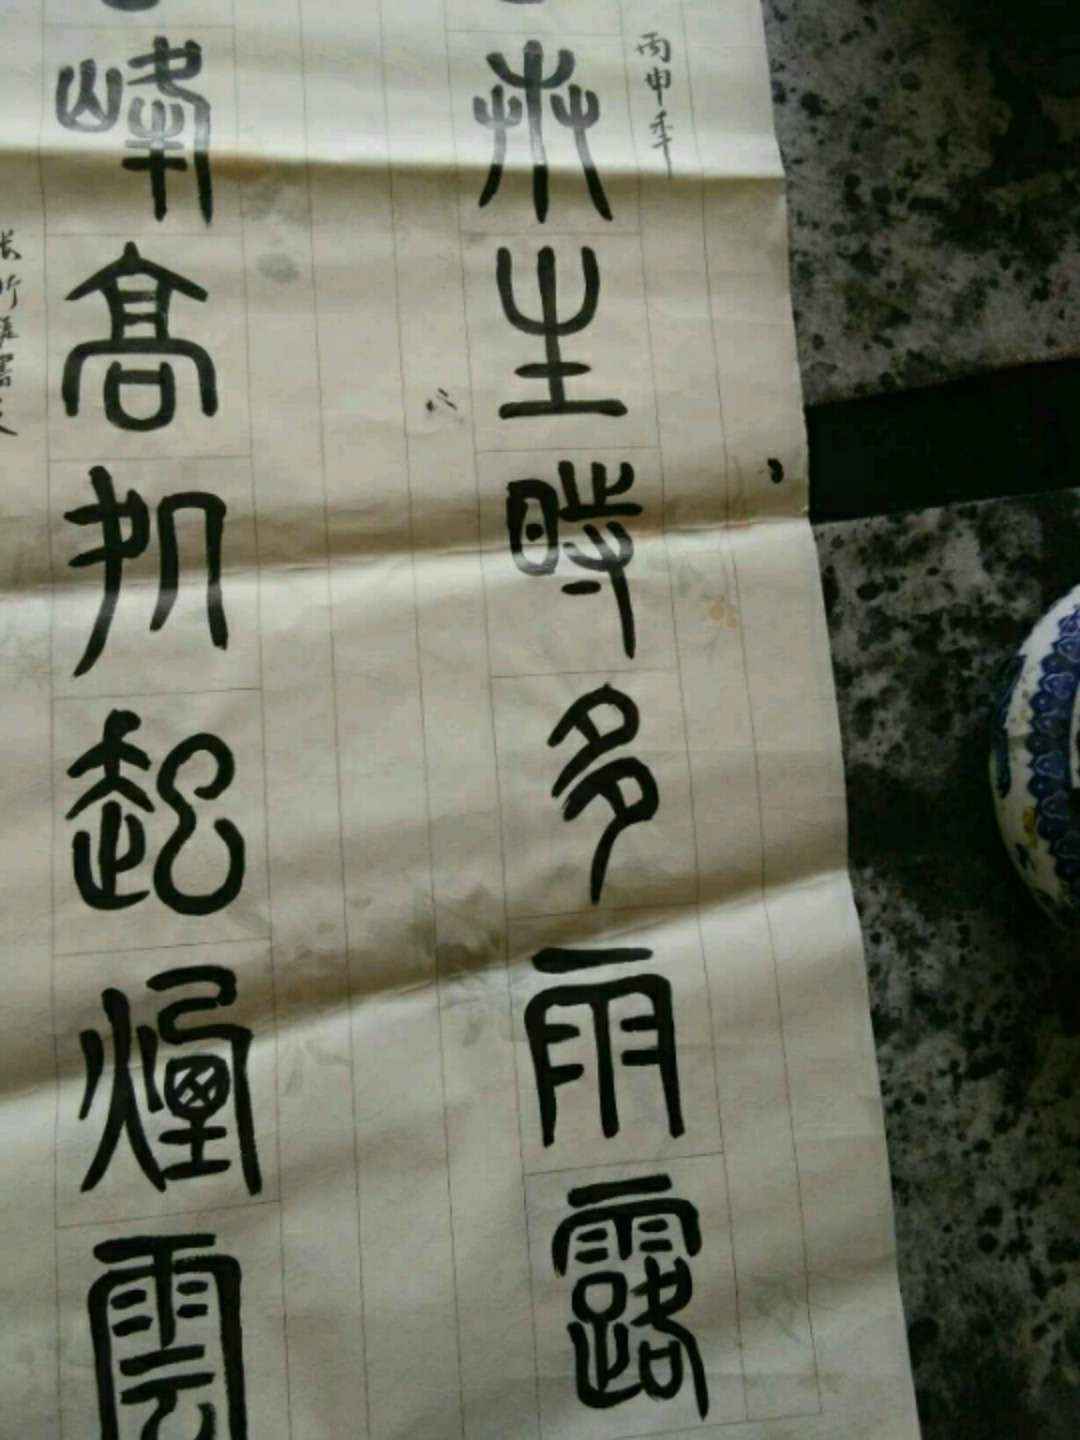 丙申年
生時多雨露
峰高起煙雲